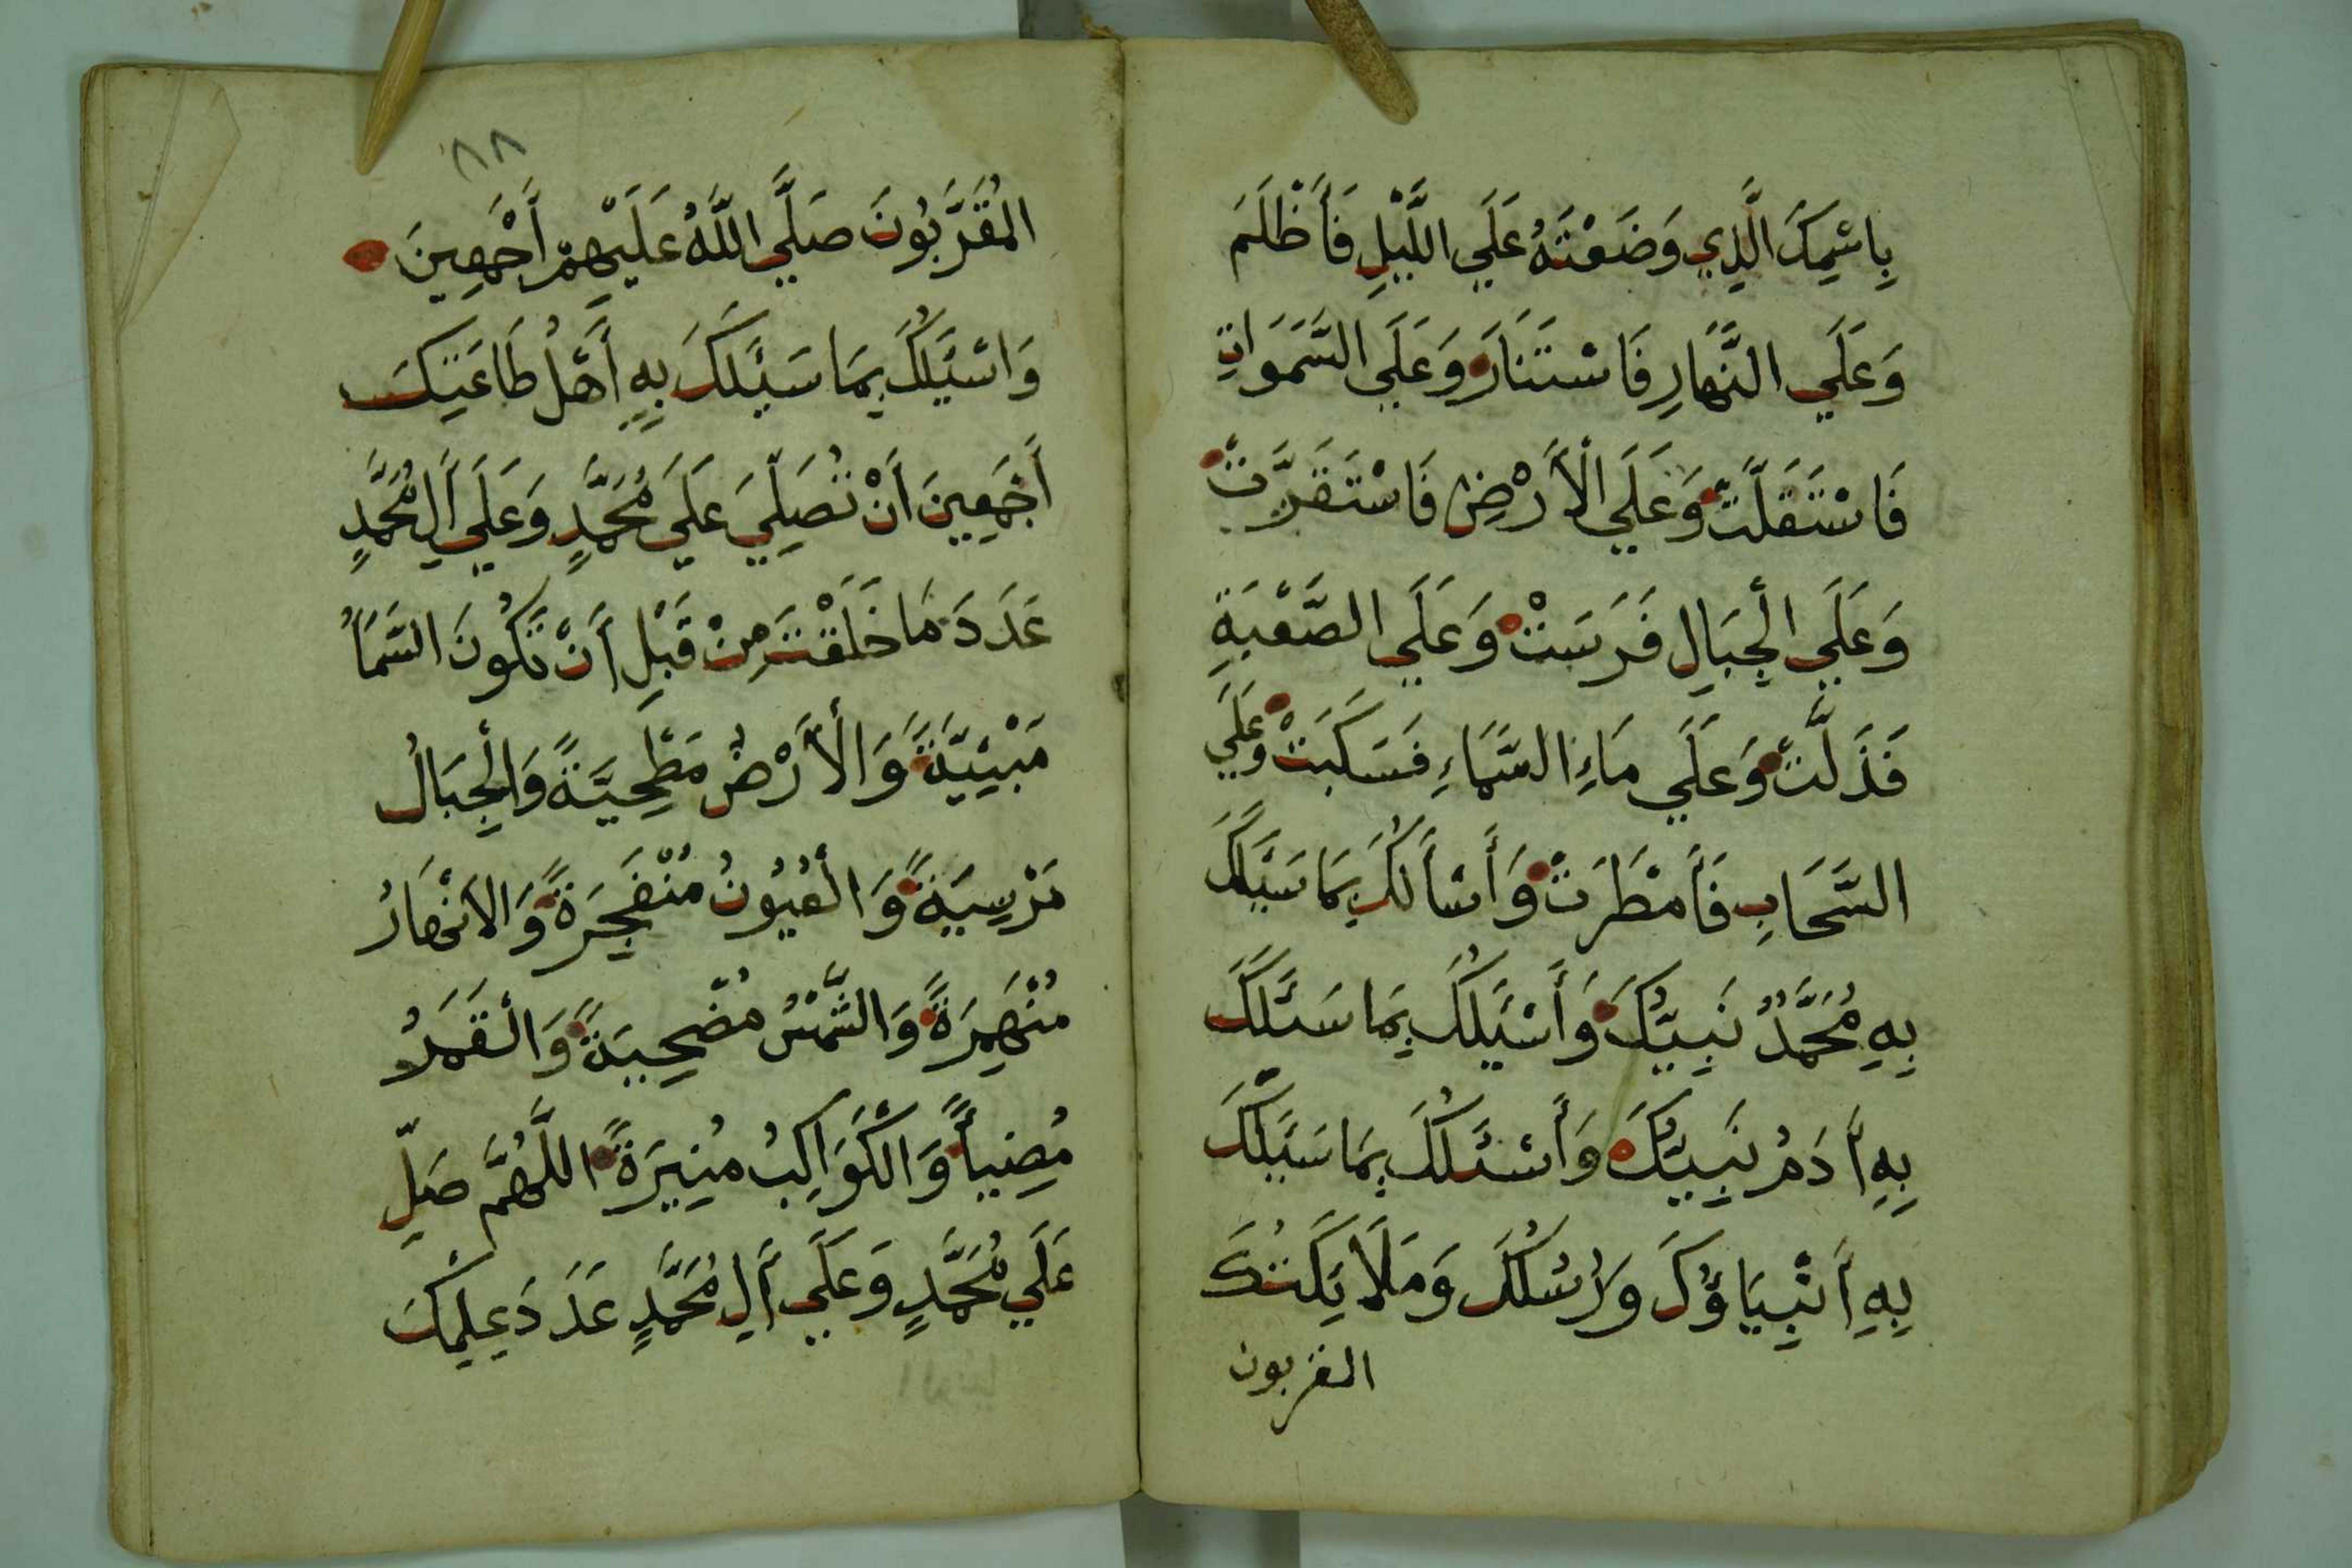 بِاسْمِكَ الَّذِي وَضَعْتَهُ عَلَي اللَّيْلِ فَأَظْلَمَ
وَعَلَي النَّهَارِ فَاسْتَنَارَ وَعَلَي السَّمَوَاتِ
فَاسْتَقَلَّتْ وَعَلَي الْأَرْضِ فَاسْتَقَرَّتْ
وَعَلَي الْجِبَالِ فَرَسَتْ وَعَلَي الصَّعْبَةِ
فَذَلَّتْ وَعَلَي مَاءِ السَّمَاءِ فَسَكَبَتْ وَعَلَي
السَّحَابِ فَأَمْطَرَتْ وَأَسْأَلُكَ بِمَا سَئَلَكَ
بِهِ مُحَمَّدٌ نَبِيُّكَ وَأَسْئَلُكَ بِمَا سَئَلَكَ
بِهِ أَدَمُ نَبِيُّكَ وَأَسْئَلُكَ بِمَا سَئَلَكَ
بِهِ أَنْبِيَاؤُكَ وَرُسُلُكَ وَمَلَايِكَتُكَ
المقربون
٨٨
الْمُقَرَّبُونَ صَلَّي اللَّهُ عَلَيْهِمْ أَجْمَعِينَ
وَاسْئَلُكَ بِمَا سَئَلَكَ بِهِ أَهْلُ طَاعَتِكَ
أَجْمَعِينَ اَنْ تُصَلِّيَ عَلَي مُحَمَّدٍ وَعَلَي أَلِ مُحَمَّدٍ
عَدَدَ مَا خَلَقْتَ مِنْ قَبْلِ أَنْ تَكُونَ السَّمَاُ
مَبْنِيَّةً وَالْأَرْضُ مَطْحِيَّةً وَالْجِبَالُ
مَرْسِيَةً وَالْعُيُونُ مُنْفَجِرَةً وَالاَنْهَارُ
مُنْهَمِرَةً وَالشَّمْسُ مُضْحِيَةً وَالْقَمَرُ
مُضِيأً وَالْكَوَاكِبُ مُنِيرَةً اللَّهُمَّ صَلِّ
عَلَي مُحَمَّدٍ وَعَلَي أَلِ مُحَمَّدٍ عَدَدَ عِلْمِكَ